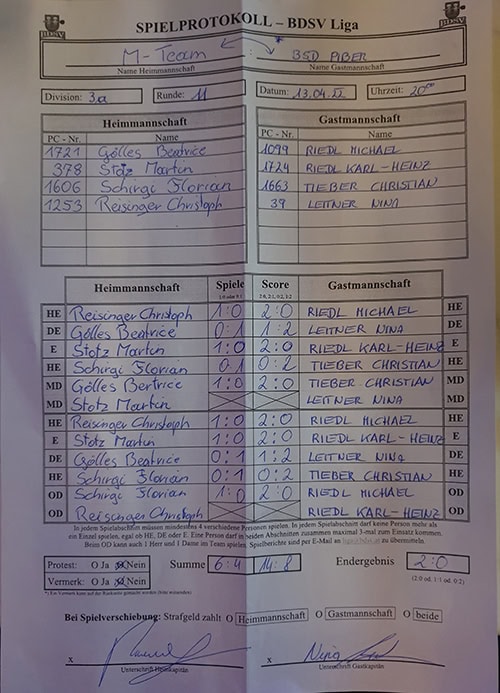 SPIELPROTOKOLL – BDSV Liga
M-Team BSD PIBER
Name Heimmannschaft Name Gastmannschaft
Division: 3a Runde: 11 Datum: 13.04.22 Uhrzeit: 20⁰⁰
Heimmannschaft Gastmannschaft
PC - Nr. Name PC - Nr. Name
1721 Gölles Beatrice 1099 RIEDL MICHAEL
378 Stotz Martin 1724 RIEDL KARL-HEINZ
1606 Schirgi Florian 1663 TIEBER CHRISTIAN
1253 Reisinger Christoph 39 LEITNER NINA
Heimmannschaft Spiele Score Gastmannschaft
1:0 oder 0:1 2:0, 2:1, 0:2, 1:2
HE Reisinger Christoph 1:0 2:0 RIEDL MICHAEL HE
DE Gölles Beatrice 0:1 1:2 LEITNER NINA DE
E Stotz Martin 1:0 2:0 RIEDL KARL-HEINZ E
HE Schirgi Florian 0:1 0:2 TIEBER CHRISTIAN HE
MD Gölles Bertrice 1:0 2:0 TIEBER CHRISTIAN MD
MD Stotz Martin LEITNER NINA MD
HE Reisinger Christoph 1:0 2:0 RIEDL MICHAEL HE
E Stotz Martin 1:0 2:0 RIEDL KARL-HEINZ E
DE Gölles Beatrice 0:1 1:2 LEITNER NINA DE
HE Schirgi Florian 0:1 0:2 TIEBER CHRISTIAN HE
OD Schirgi Florian 1:0 2:0 RIEDL MICHAEL OD
OD Reisinger Christoph RIEDL KARL-HEINZ OD
In jedem Spielabschnitt müssen mindestens 4 verschiedene Personen spielen. In jedem Spielabschnitt darf keine Person mehr als
ein Einzel spielen, egal ob HE, DE oder E. Eine Person darf in beiden Abschnitten zusammen maximal 3-mal zum Einsatz kommen.
Beim OD kann auch 1 Herr und 1 Dame im Team spielen. Spielberichte sind per E-Mail an zu übermitteln.
Protest: O Ja O Nein Summe 6:4 14:8 Endergebnis 2:0
Vermerk: O Ja O Nein (2:0 od. 1:1 od. 0:2)
Bei Spielverschiebung: Strafgeld zahlt O Heimmannschaft O Gastmannschaft O beide
x x
Unterschrift Heimkapitän Unterschrift Gastkapitän